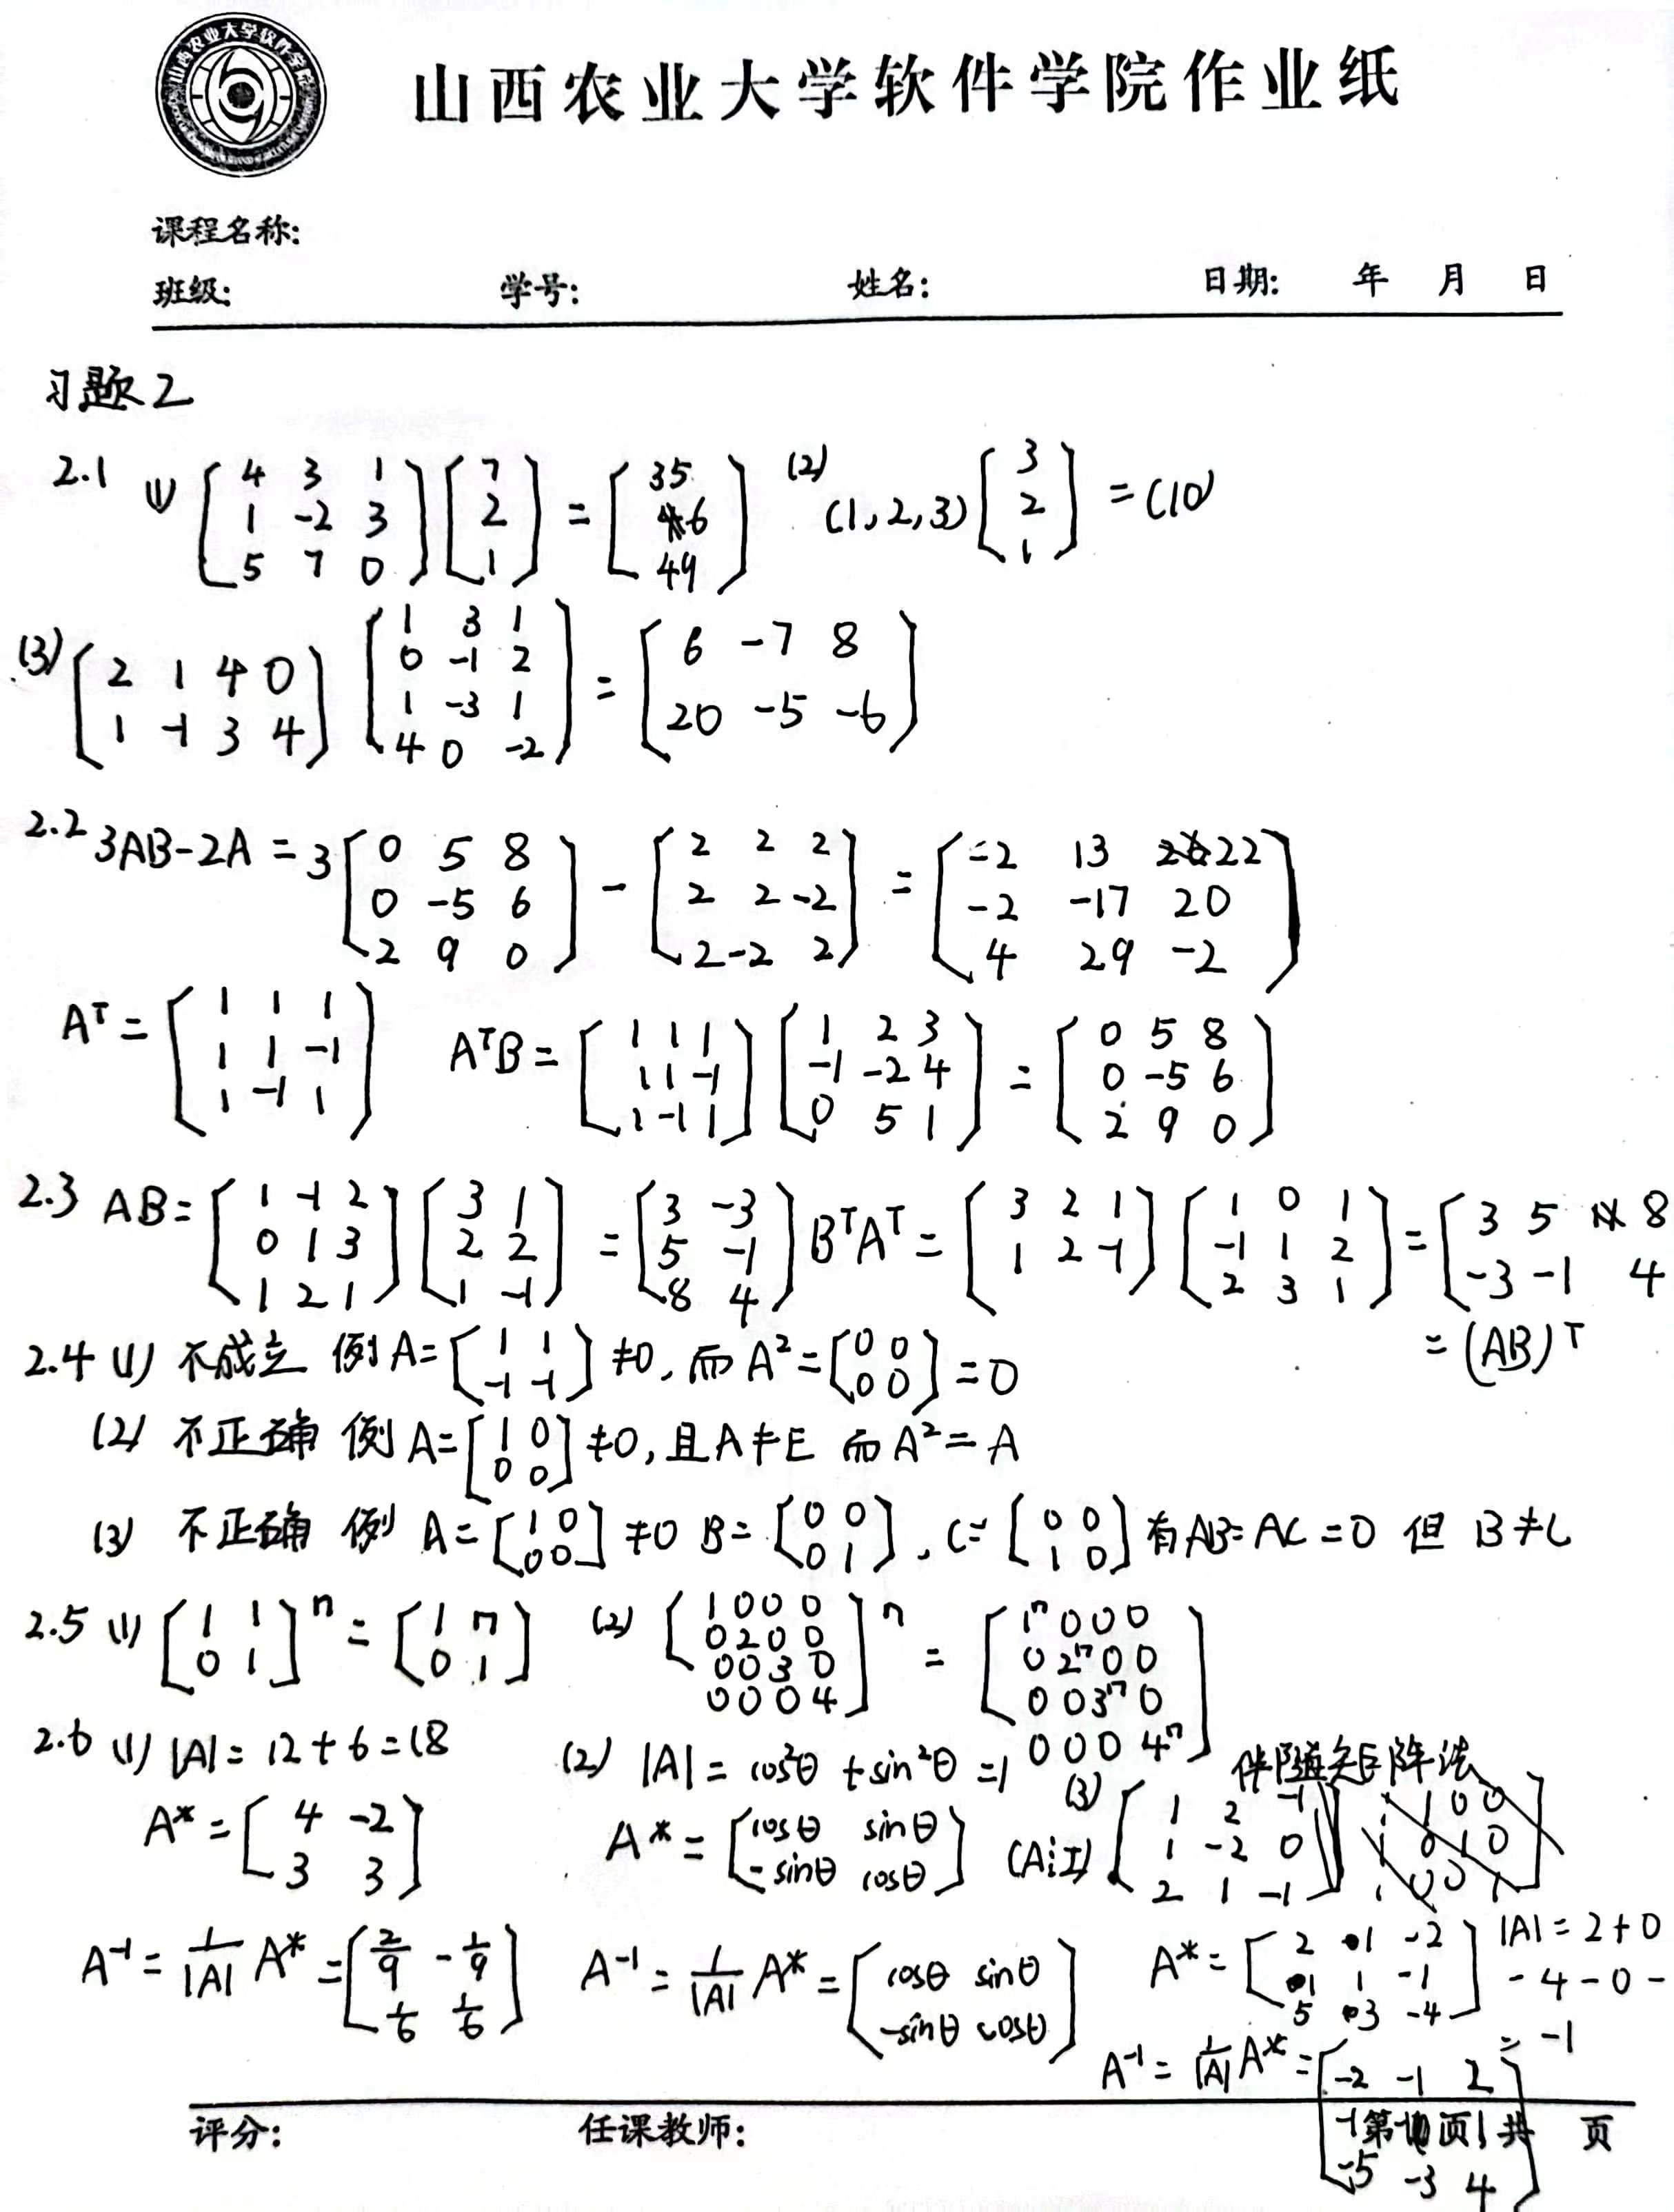 山西农业大学软件学院
山西农业大学软件学院作业纸
课程名称:
班级: 学号: 姓名: 日期: 年 月 日
习题2
2.1 (1) [4 3 1; 1 -2 3; 5 7 0] [7; 2; 1] = [35; 6; 49] (2) (1,2,3) [3; 2; 1] = (10)
(3) [2 1 4 0; 1 -1 3 4] [1 3 1; 0 -1 2; 1 -3 1; 4 0 -2] = [6 -7 8; 20 -5 -6]
2.2 3AB-2A = 3[0 5 8; 0 -5 6; 2 9 0] - [2 2 2; 2 2 -2; 2 -2 2] = [-2 13 22; -2 -17 20; 4 29 -2]
Aᵀ = [1 1 1; 1 1 -1; 1 -1 1] AᵀB = [1 1 1; 1 1 -1; 1 -1 1] [1 2 3; -1 -2 4; 0 5 1] = [0 5 8; 0 -5 6; 2 9 0]
2.3 AB = [1 -1 2; 0 1 3; 1 2 1] [3 1; 2 2; 1 -1] = [3 -3; 5 -1; 8 4] BᵀAᵀ = [3 2 1; 1 2 -1] [1 0 1; -1 1 2; 2 3 1] = [3 5 8; -3 -1 4]
= (AB)ᵀ
2.4 (1) 不成立 例 A = [1 1; -1 -1] ≠0, 而 A² = [0 0; 0 0] = 0
(2) 不正确 例 A = [1 0; 0 0] ≠0, 且 A≠E 而 A² = A
(3) 不正确 例 A = [1 0; 0 0] ≠0 B = [0 0; 0 1], C = [0 0; 1 0] 有 AB=AC=0 但 B≠C
2.5 (1) [1 1; 0 1]ⁿ = [1 n; 0 1] (2) [1 0 0 0; 0 2 0 0; 0 0 3 0; 0 0 0 4]ⁿ = [1ⁿ 0 0 0; 0 2ⁿ 0 0; 0 0 3ⁿ 0; 0 0 0 4ⁿ]
2.6 (1) |A| = 12+6=18 (2) |A| = cos²θ + sin²θ = 1 (3) 伴随矩阵法
A* = [4 -2; 3 3] A* = [cosθ sinθ; -sinθ cosθ] (A⋮I) [1 2 -1; 1 -2 0; 2 1 -1]
A⁻¹ = 1/|A| A* = [2/9 -1/9; 1/6 1/6] A⁻¹ = 1/|A| A* = [cosθ sinθ; -sinθ cosθ] A* = [2 1 -2; 1 1 -1; 5 3 -4] |A| = 2+0
-4-0-
= -1
A⁻¹ = 1/|A| A* = [-2 -1 2; -1 -1 1; -5 -3 4]
评分: 任课教师: 第 页 共 页